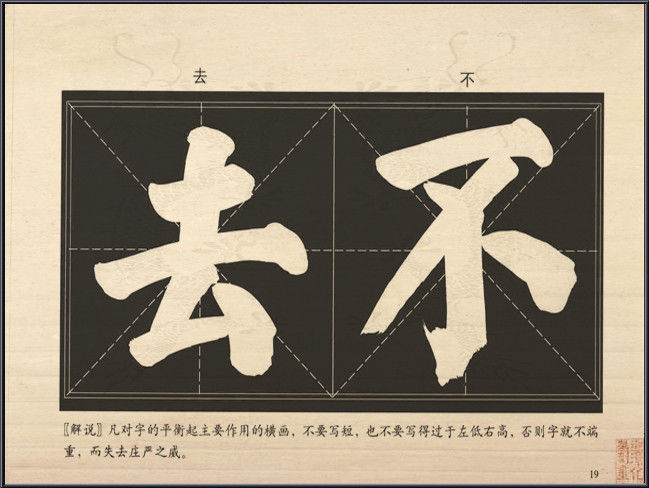 去 不
去 不
〖解说〗凡对字的平衡起主要作用的横画，不要写短，也不要写得过于左低右高，否则字就不端
重，而失去庄严之感。
19